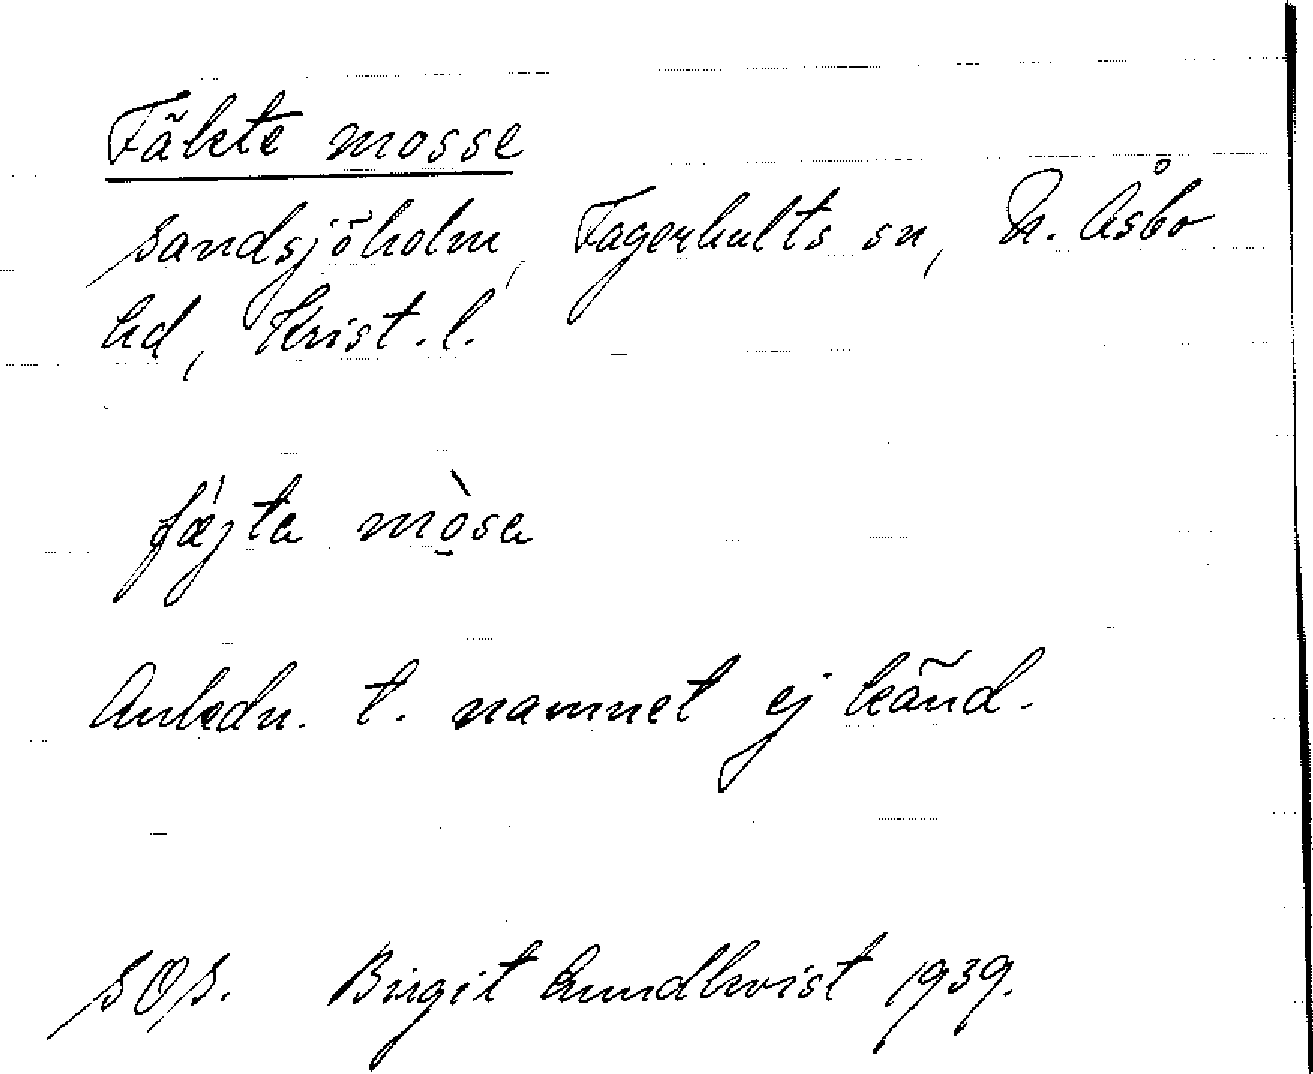 Fäkte mosse
Sandsjöholm, Fagerhults sn, N. Åsbo
hd, Krist. l.
fæjta mòsa
Anledn. t. namnet ej känd.
SOS. Birgit Lundkvist 1939.